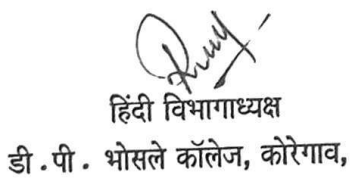 हिंदी विभागाध्यक्ष
डी . पी . भोसले कॉलेज, कोरेगाव,